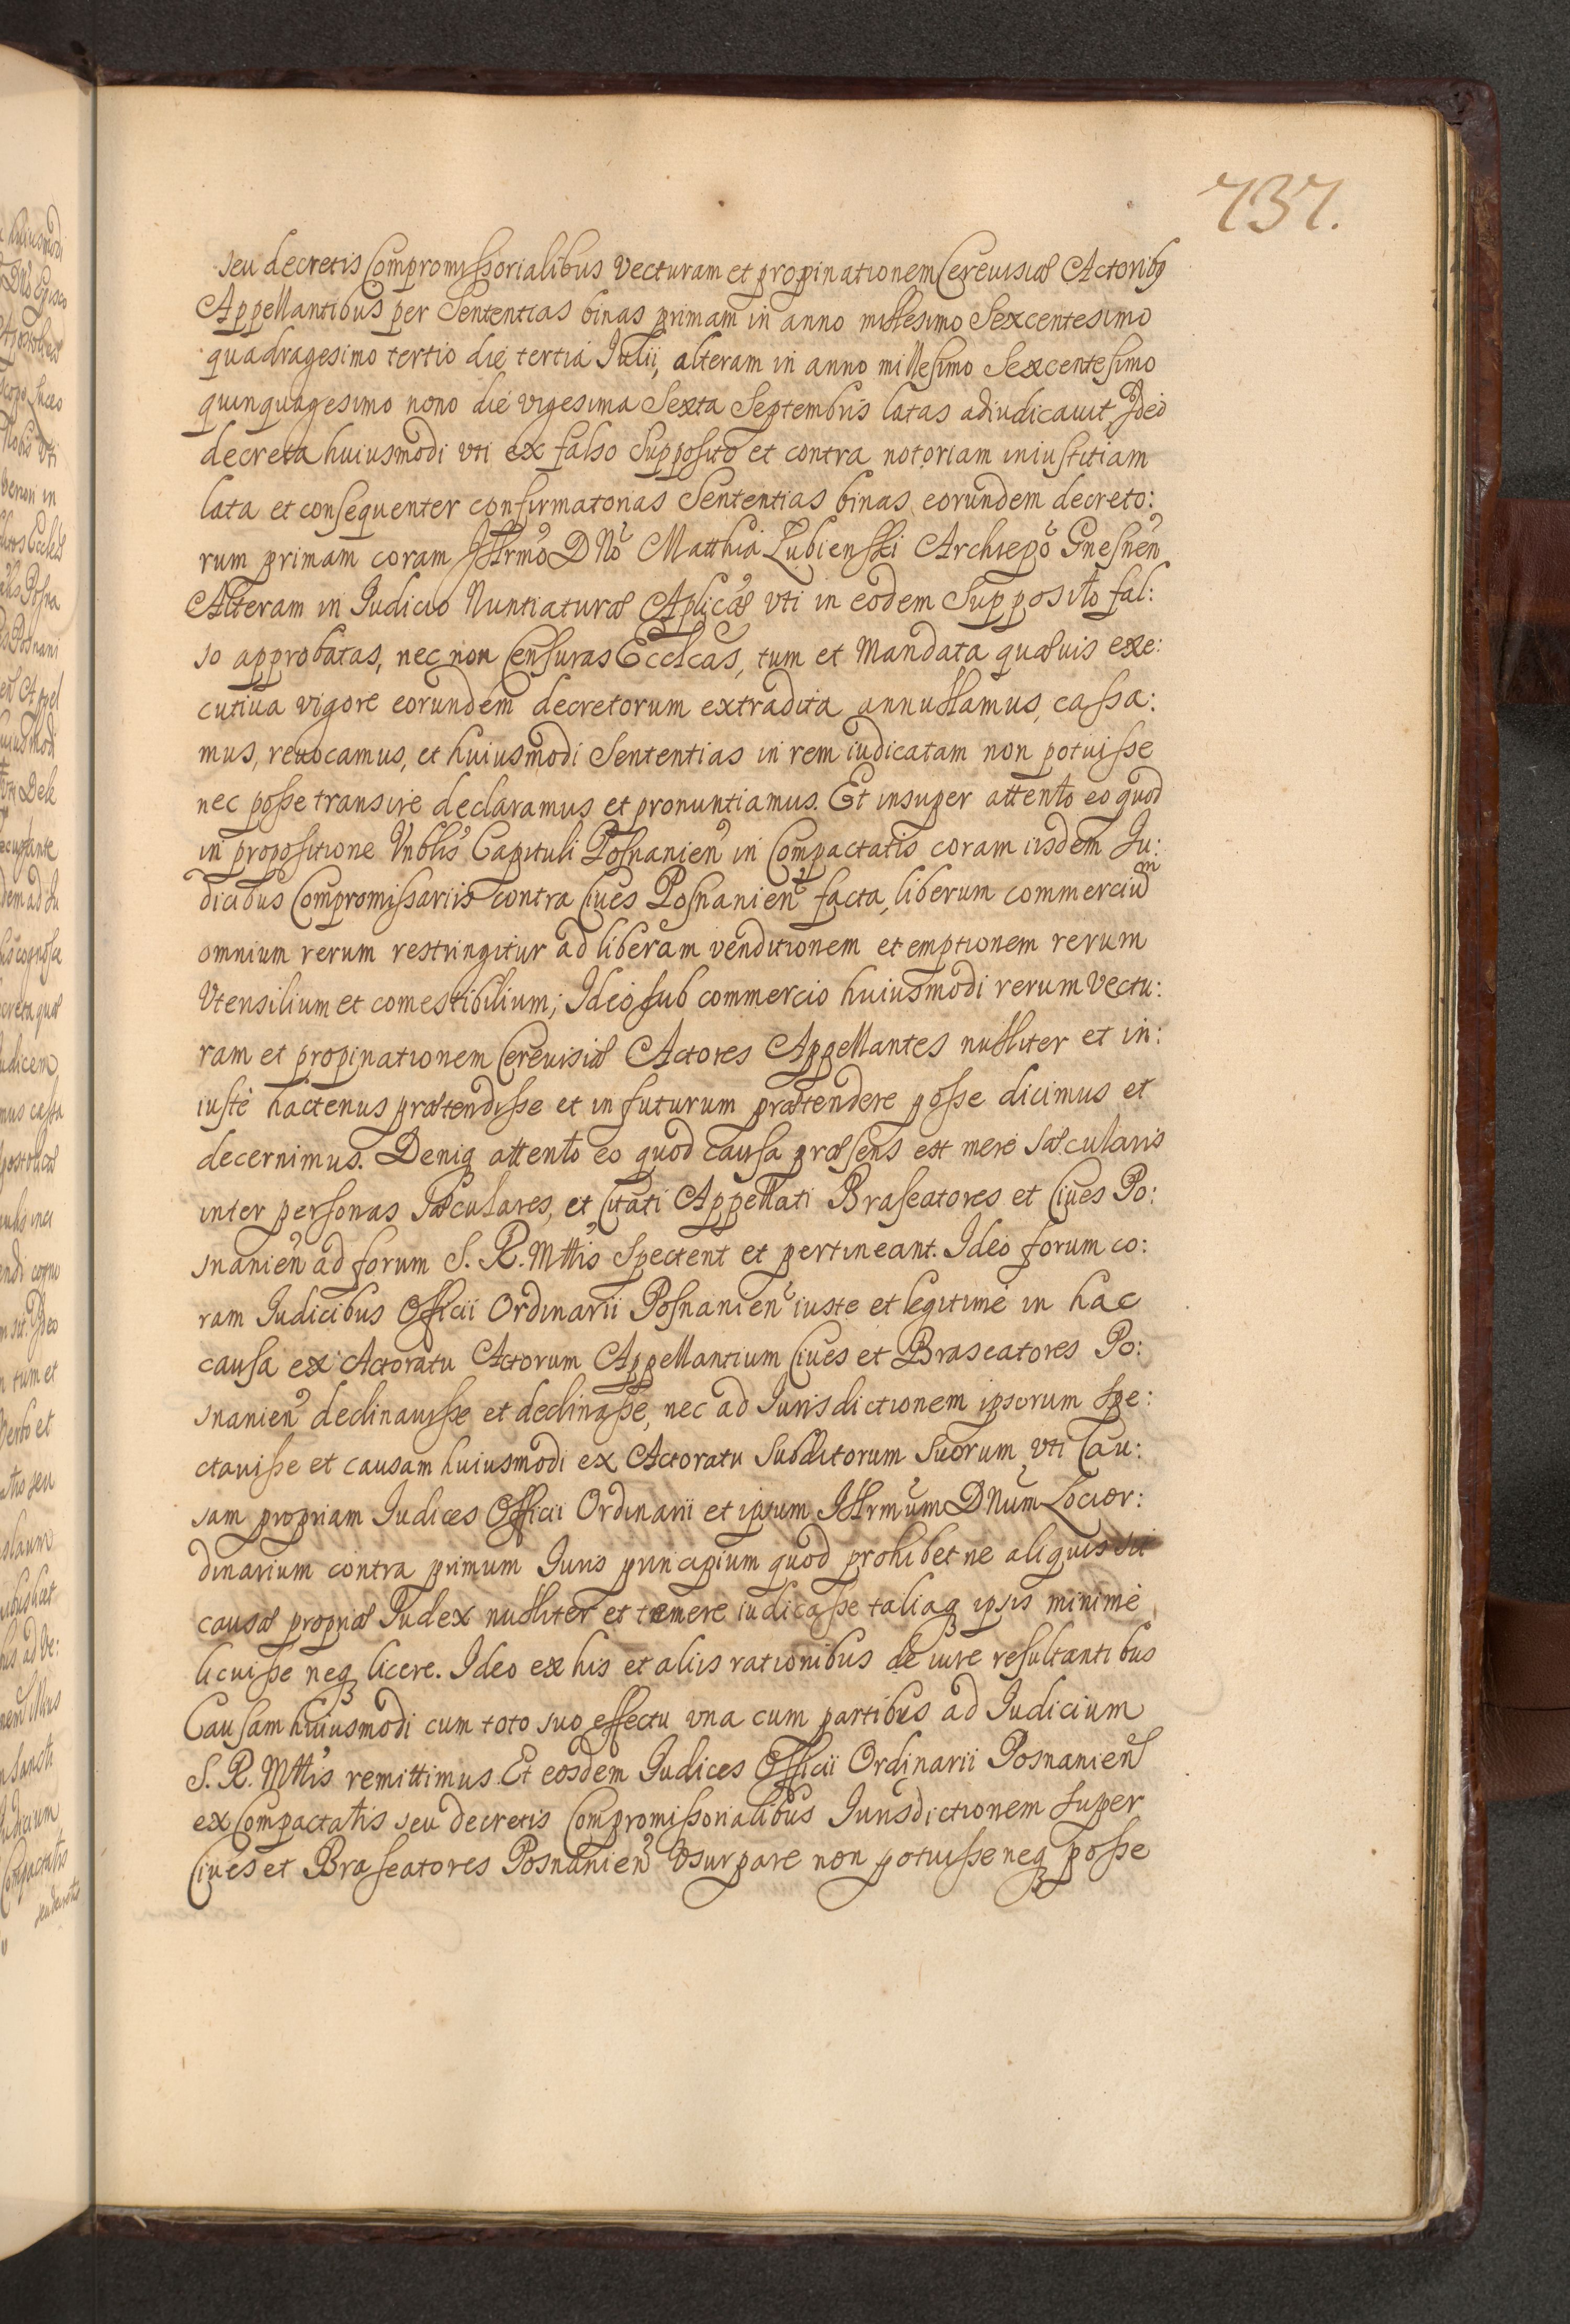 737.
seu decretis Compromissorialibus Vecturam et propinationem Cereuisiæ Actoribꝫ
Appellantibus per Sententias binas primam in anno millesimo Sexcentesimo
quadragesimo tertio die tertia Iulii, alteram in anno millesimo Sexcentesimo
quinquagesimo nono die vigesima Sexta Septembris latas adiudicauit, Ideo
decreta huiusmodi vti ex falso Supposito et contra notoriam iniustitiam
lata et consequenter confirmatorias Sententias binas eorundem decreto:
rum primam coram Illrmo DNo Matthia Łubienski Archiepo Gnesnen
Alteram in Iudicio Nuntiaturæ Aplicæ vti in eodem Supposito fal:
so approbatas, nec non Censuras Ecclcas, tum et Mandata quæuis exe:
cutiua vigore eorundem decretorum extradita annullamus, cassa:
mus, reuocamus, et huiusmodi Sententias in rem iudicatam non potuisse
nec posse transire declaramus et pronuntiamus. Et insuper attento eo quod
in propositione Vnblis Capituli Posnanien in Compactatis coram iisdem Iu:
dicibus Compromissariis contra Ciues Posnanien facta, liberum commercium
omnium rerum restringitur ad liberam venditionem et emptionem rerum
Vtensilium et comestibilium; Ideo sub commercio huiusmodi rerum Vectu:
ram et propinationem Cereuisiæ Actores Appellantes nulliter et in:
iuste hactenus prætendisse et in futurum prætendere posse dicimus et
decernimus. Deniqꝫ attento eo quod causa præsens est mere sæcularis
inter personas Sæculares, et Citati Appellati Braseatores et Ciues Po:
snanien ad forum S. R. Mttis Spectent et pertineant. Ideo forum co:
ram Iudicibus Officii Ordinarii Posnanien iuste et legitime in hac
causa ex Actoratu Actorum Appellantium Ciues et Braseatores Po:
snanien declinauisse et declinasse, nec ad Iurisdictionem ipsorum Spe:
ctauisse et causam huiusmodi ex Actoratu Subditorum Suorum, vti Cau:
sam propriam Iudices Officii Ordinarii et ipsum Illrmum DNum Locior:
dinarium contra primum Iuris principium quod prohibet ne aliquis sit
causæ propriæ Iudex nulliter et temere iudicasse taliaqꝫ ipsis minime
licuisse neqꝫ licere. Ideo ex his et aliis rationibus de iure resultantibus
Causam huiusmodi cum toto suo effectu vna cum partibus ad Iudicium
S. R. Mttis remittimus. Et eosdem Iudices Officii Ordinarii Posnanien
ex Compactatis seu decretis Compromissorialibus Iurisdictionem Super
Ciues et Braseatores Posnanien Vsurpare non potuisse neqꝫ posse